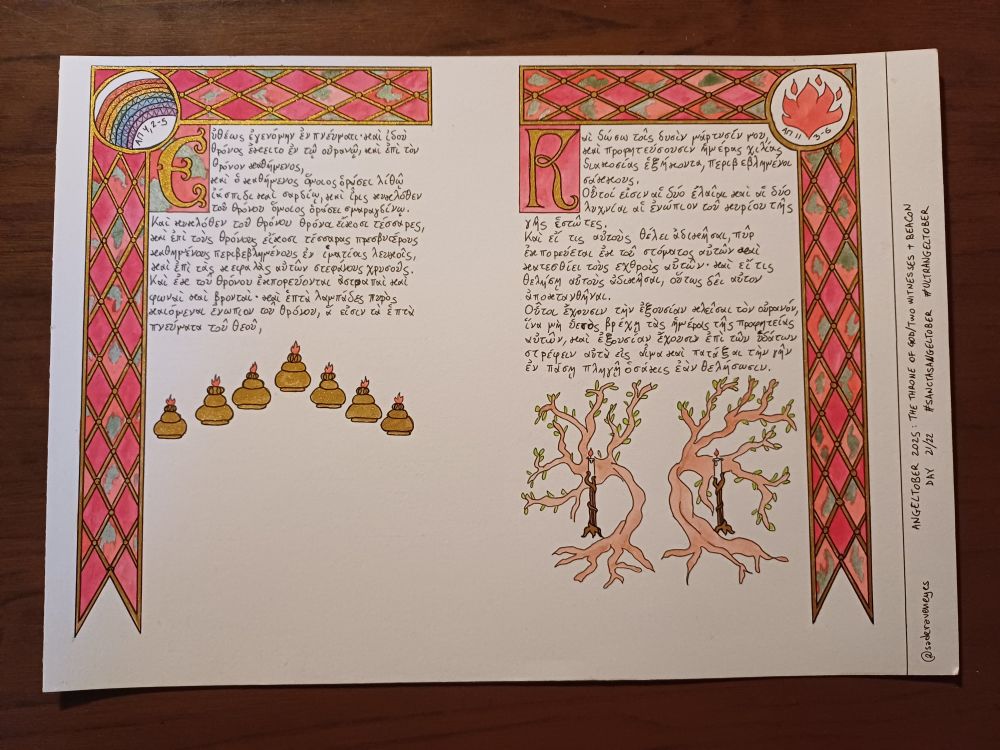 ΑΠ 4,2-5
Εὐθέως ἐγενόμην ἐν πνεύματι· καὶ ἰδοὺ
θρόνος ἔκειτο ἐν τῷ οὐρανῷ, καὶ ἐπὶ τὸν
θρόνον καθήμενος,
καὶ ὁ καθήμενος ὅμοιος ὁράσει λίθῳ
ἰάσπιδι καὶ σαρδίῳ, καὶ ἶρις κυκλόθεν
τοῦ θρόνου ὅμοιος ὁράσει σμαραγδίνῳ.
Καὶ κυκλόθεν τοῦ θρόνου θρόνα εἴκοσι τέσσαρες,
καὶ ἐπὶ τοὺς θρόνους εἴκοσι τέσσαρας πρεσβυτέρους
καθημένους περιβεβλημένους ἐν ἱματίοις λευκοῖς,
καὶ ἐπὶ τὰς κεφαλὰς αὐτῶν στεφάνους χρυσοῦς.
Καὶ ἐκ τοῦ θρόνου ἐκπορεύονται ἀστραπαὶ καὶ
φωναὶ καὶ βρονταί· καὶ ἑπτὰ λαμπάδες πυρὸς
καιόμεναι ἐνώπιον τοῦ θρόνου, ἅ εἰσιν τὰ ἑπτὰ
πνεύματα τοῦ θεοῦ,
ΑΠ 11 3-6
Καὶ δώσω τοῖς δυσὶν μάρτυσίν μου,
καὶ προφητεύσουσιν ἡμέρας χιλίας
διακοσίας ἑξήκοντα, περιβεβλημένοι
σάκκους.
Οὗτοί εἰσιν αἱ δύο ἐλαῖαι καὶ αἱ δύο
λυχνίαι αἱ ἐνώπιον τοῦ κυρίου τῆς
γῆς ἑστῶτες.
Καὶ εἴ τις αὐτοὺς θέλει ἀδικῆσαι, πῦρ
ἐκπορεύεται ἐκ τοῦ στόματος αὐτῶν καὶ
κατεσθίει τοὺς ἐχθροὺς αὐτῶν· καὶ εἴ τις
θελήσῃ αὐτοὺς ἀδικῆσαι, οὕτως δεῖ αὐτὸν
ἀποκτανθῆναι.
Οὗτοι ἔχουσιν τὴν ἐξουσίαν κλεῖσαι τὸν οὐρανόν,
ἵνα μὴ ὑετὸς βρέχῃ τὰς ἡμέρας τῆς προφητείας
αὐτῶν, καὶ ἐξουσίαν ἔχουσιν ἐπὶ τῶν ὑδάτων
στρέφειν αὐτὰ εἰς αἷμα καὶ πατάξαι τὴν γῆν
ἐν πάσῃ πληγῇ ὁσάκις ἐὰν θελήσωσιν.
ANGELTOBER 2025: THE THRONE OF GOD/TWO WITNESSES + BEACON
DAY 21/22 #SANCTASANGELTOBER #ULTRANGELTOBER
@saderaveneyes